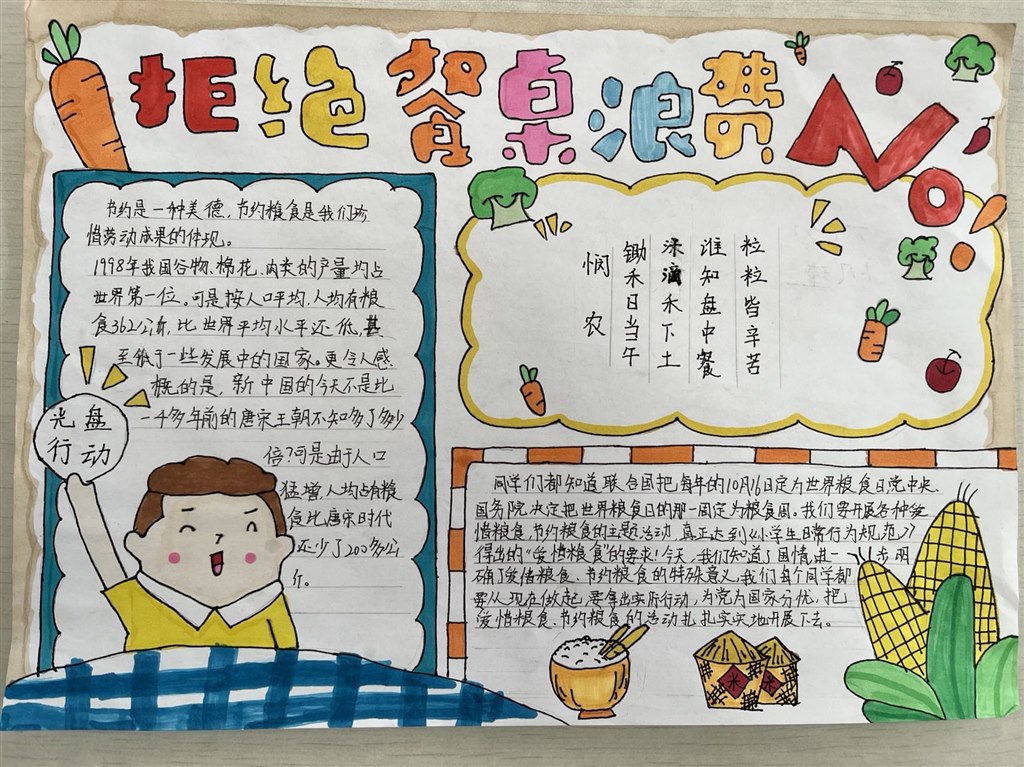 拒绝餐桌浪费NO
节约是一种美德，节约粮食是我们珍
惜劳动成果的体现。
1998年我国谷物、棉花、肉类的产量均占
世界第一位。可是按人口平均，人均有粮
食362公斤，比世界平均水平还低，甚
至低于一些发展中的国家。更令人感
概的是，新中国的今天不是比
一千多年前的唐宋王朝不知多了多少
倍？可是由于人口
猛增，人均占有粮
食比唐宋时代
还少了200多公
斤。
光盘
行动
悯农
锄禾日当午
汗滴禾下土
谁知盘中餐
粒粒皆辛苦
同学们都知道联合国把每年的10月16日定为世界粮食日党中央、
国务院决定把世界粮食日的那一周定为粮食周。我们要开展各种爱
惜粮食，节约粮食的主题活动，真正达到《小学生日常行为规范》
得出的"爱惜粮食"的要求！今天，我们知道了国情，进一步明
确了爱惜粮食、节约粮食的特殊意义，我们每个同学都
要从现在做起，要拿出实际行动，为党为国家分忧，把
爱惜粮食、节约粮食的活动扎扎实实地开展下去。
米